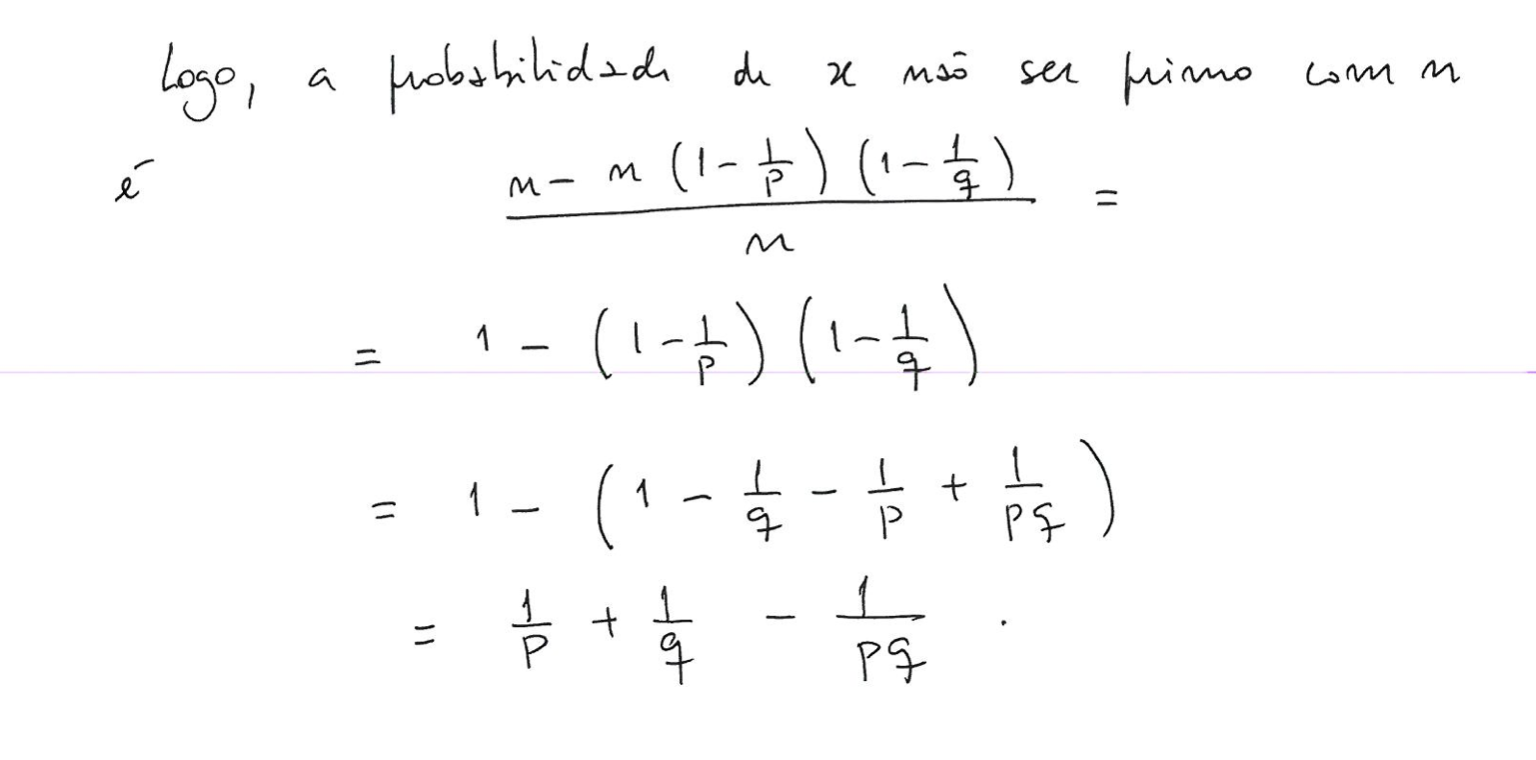 Logo, a probabilidade de x não ser primo com n
é \frac{n - n(1 - \frac{1}{p})(1 - \frac{1}{q})}{n} =
= 1 - (1 - \frac{1}{p})(1 - \frac{1}{q})
= 1 - (1 - \frac{1}{q} - \frac{1}{p} + \frac{1}{pq})
= \frac{1}{p} + \frac{1}{q} - \frac{1}{pq} .